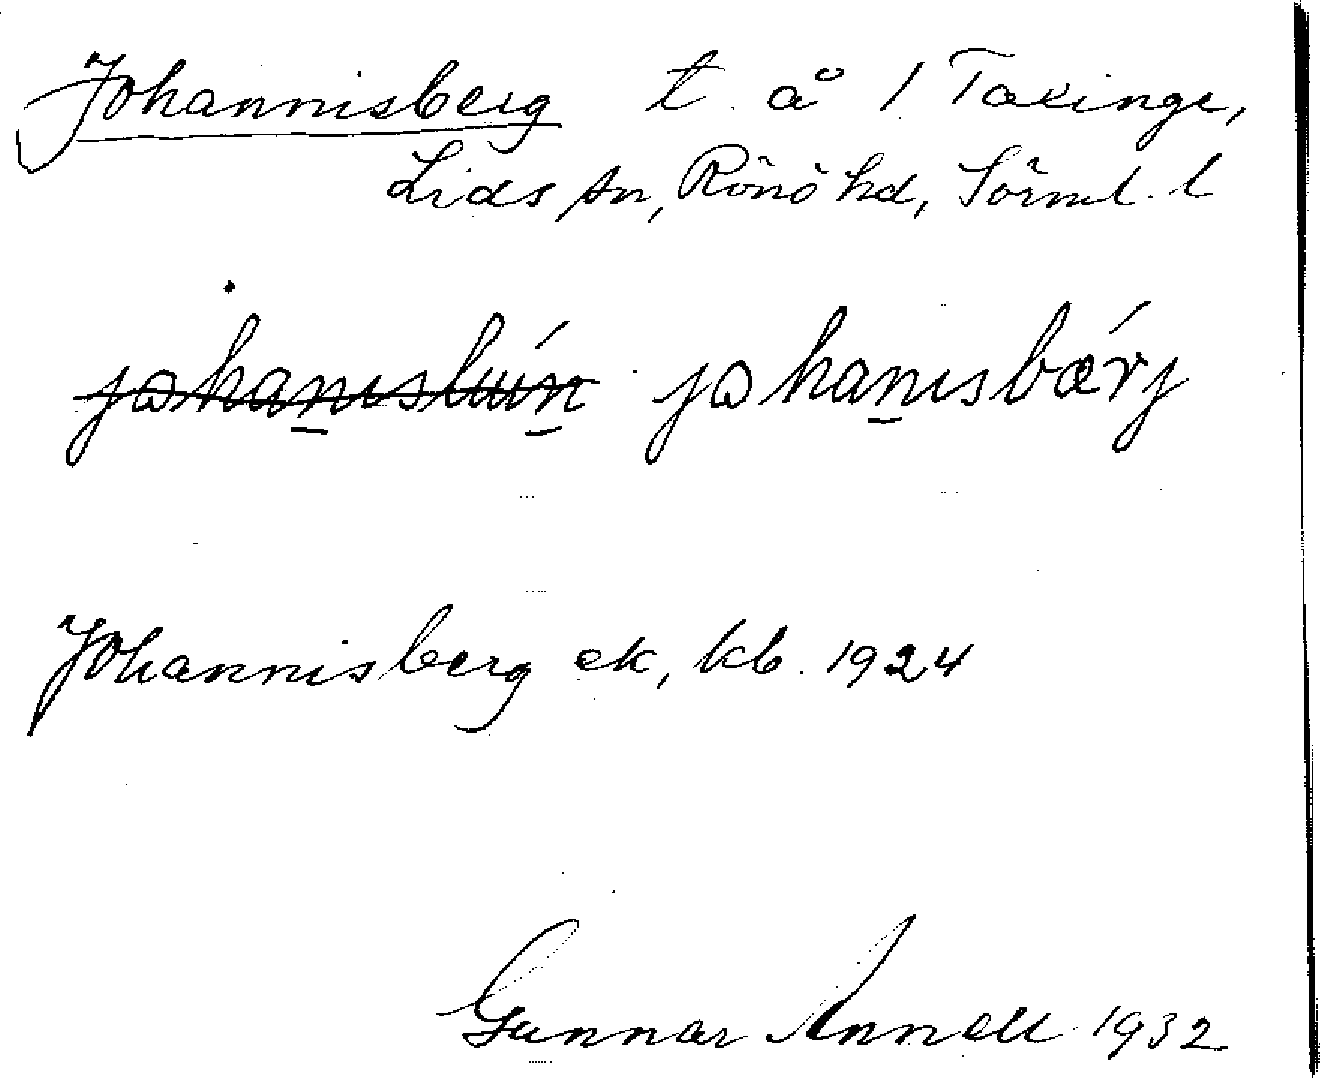 Johannisberg t. å 1 Täckinge,
Lids sn, Rönö hd, Sörml. l
johanisbærj
Johannisberg ek, kb. 1924
Gunnar Annell 1932